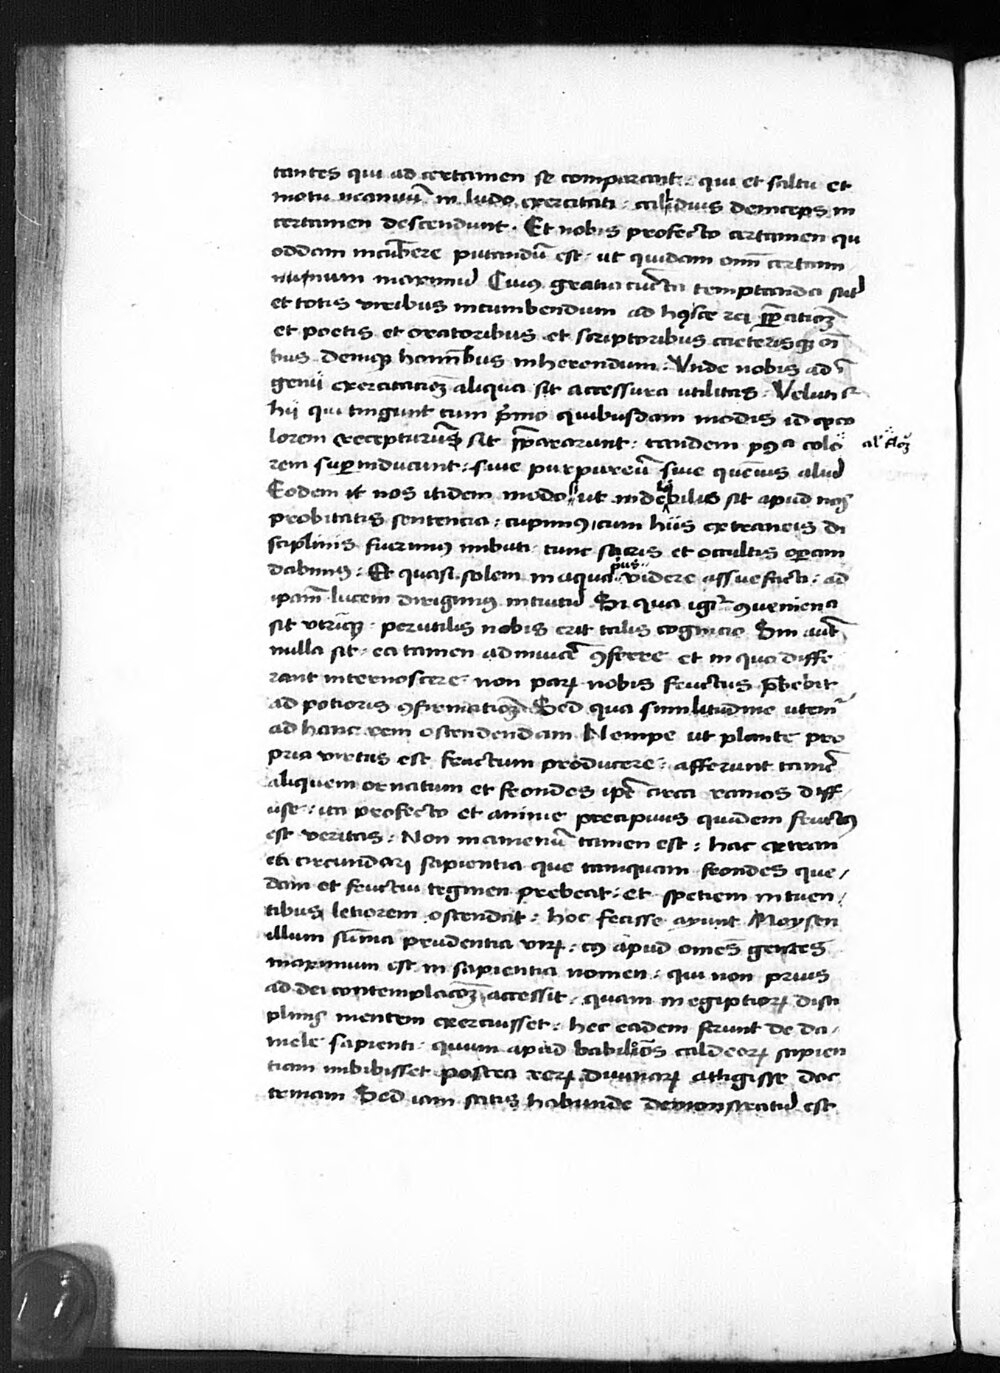 tantes qui ad certamen se comparant: qui et saltu et
motu manuū in ludo exercitati: callidius deinceps in
certamen descendunt. Et nobis profecto certamen qu
oddam incūbere putandū est: ut quidam omī certam
num maximū Cuius gratia cūcta temptanda sūt
et totis viribus incumbendum ad huiusce rei p̄paratiōꝫ
et poetis et oratoribus et scriptoribus ceterisqꝫ oī
bus deniqꝫ hominībus inherendum: Unde nobis ad ī
genii exercitatiōꝫ aliqua sit accessura utilitas. Veluti
hii qui tingunt cum p̄mo quibusdam modis id qꝫ co
lorem recepturus sit p̄pararunt: tandem postea colo
rem superinducunt: sive purpureū sive quēvis aliud
Eodem et nos itidem modo ut indelebilis sit apud nos
probitatis sentencia: cupimus, cum hiis extraneis di
sciplinis fuerimus imbuti: tunc sacris et occultis operam
dabimus: Et quasi solem in aqua prius videre assuefacti: ad
ipam̄ lucem dirigimus intuitū Si qua igiᵗ conveniencia
sit utrisqꝫ: perutilis nobis erit talis cognicio Sin autē
nulla sit: ea tamen adinvicē conferre et in quo diffe
rant internoscere: non parꝝ nobis fructus p̄bebit
ad potioris confirmatiōꝫ Sed qua similitudine utemᵗ
ad hanc rem ostendendam Nempe ut plante pro
pria virtus est fructum producere: afferunt tamē
aliquem ornatum et frondes ipē circa ramos diff
use: ita profecto et anime precipuus quidem fructus
est veritas: Non inamenū tamen est: hac extran
ea circundari sapientia que tamquam frondes que/
dam et fructui tegmen prebeat: et spetiem intuen/
tibus letiorem ostendat: hoc fecisse ayunt Moysen
illum sūma prudentia virꝝ: cuius apud omēs gentes
maximum est in sapientia nomen: qui non prius
ad dei contemplacōꝫ accessit: quam in egiptiorꝝ disci
plinis mentem exercuisset: hec eadem ferunt de da/
niele sapienti: quum apud babilōs caldeorꝝ sapien
tiam imbibisset postea rerꝝ divinarꝝ attigisse doc
trinam Sed iam satis habunde demonstratū est